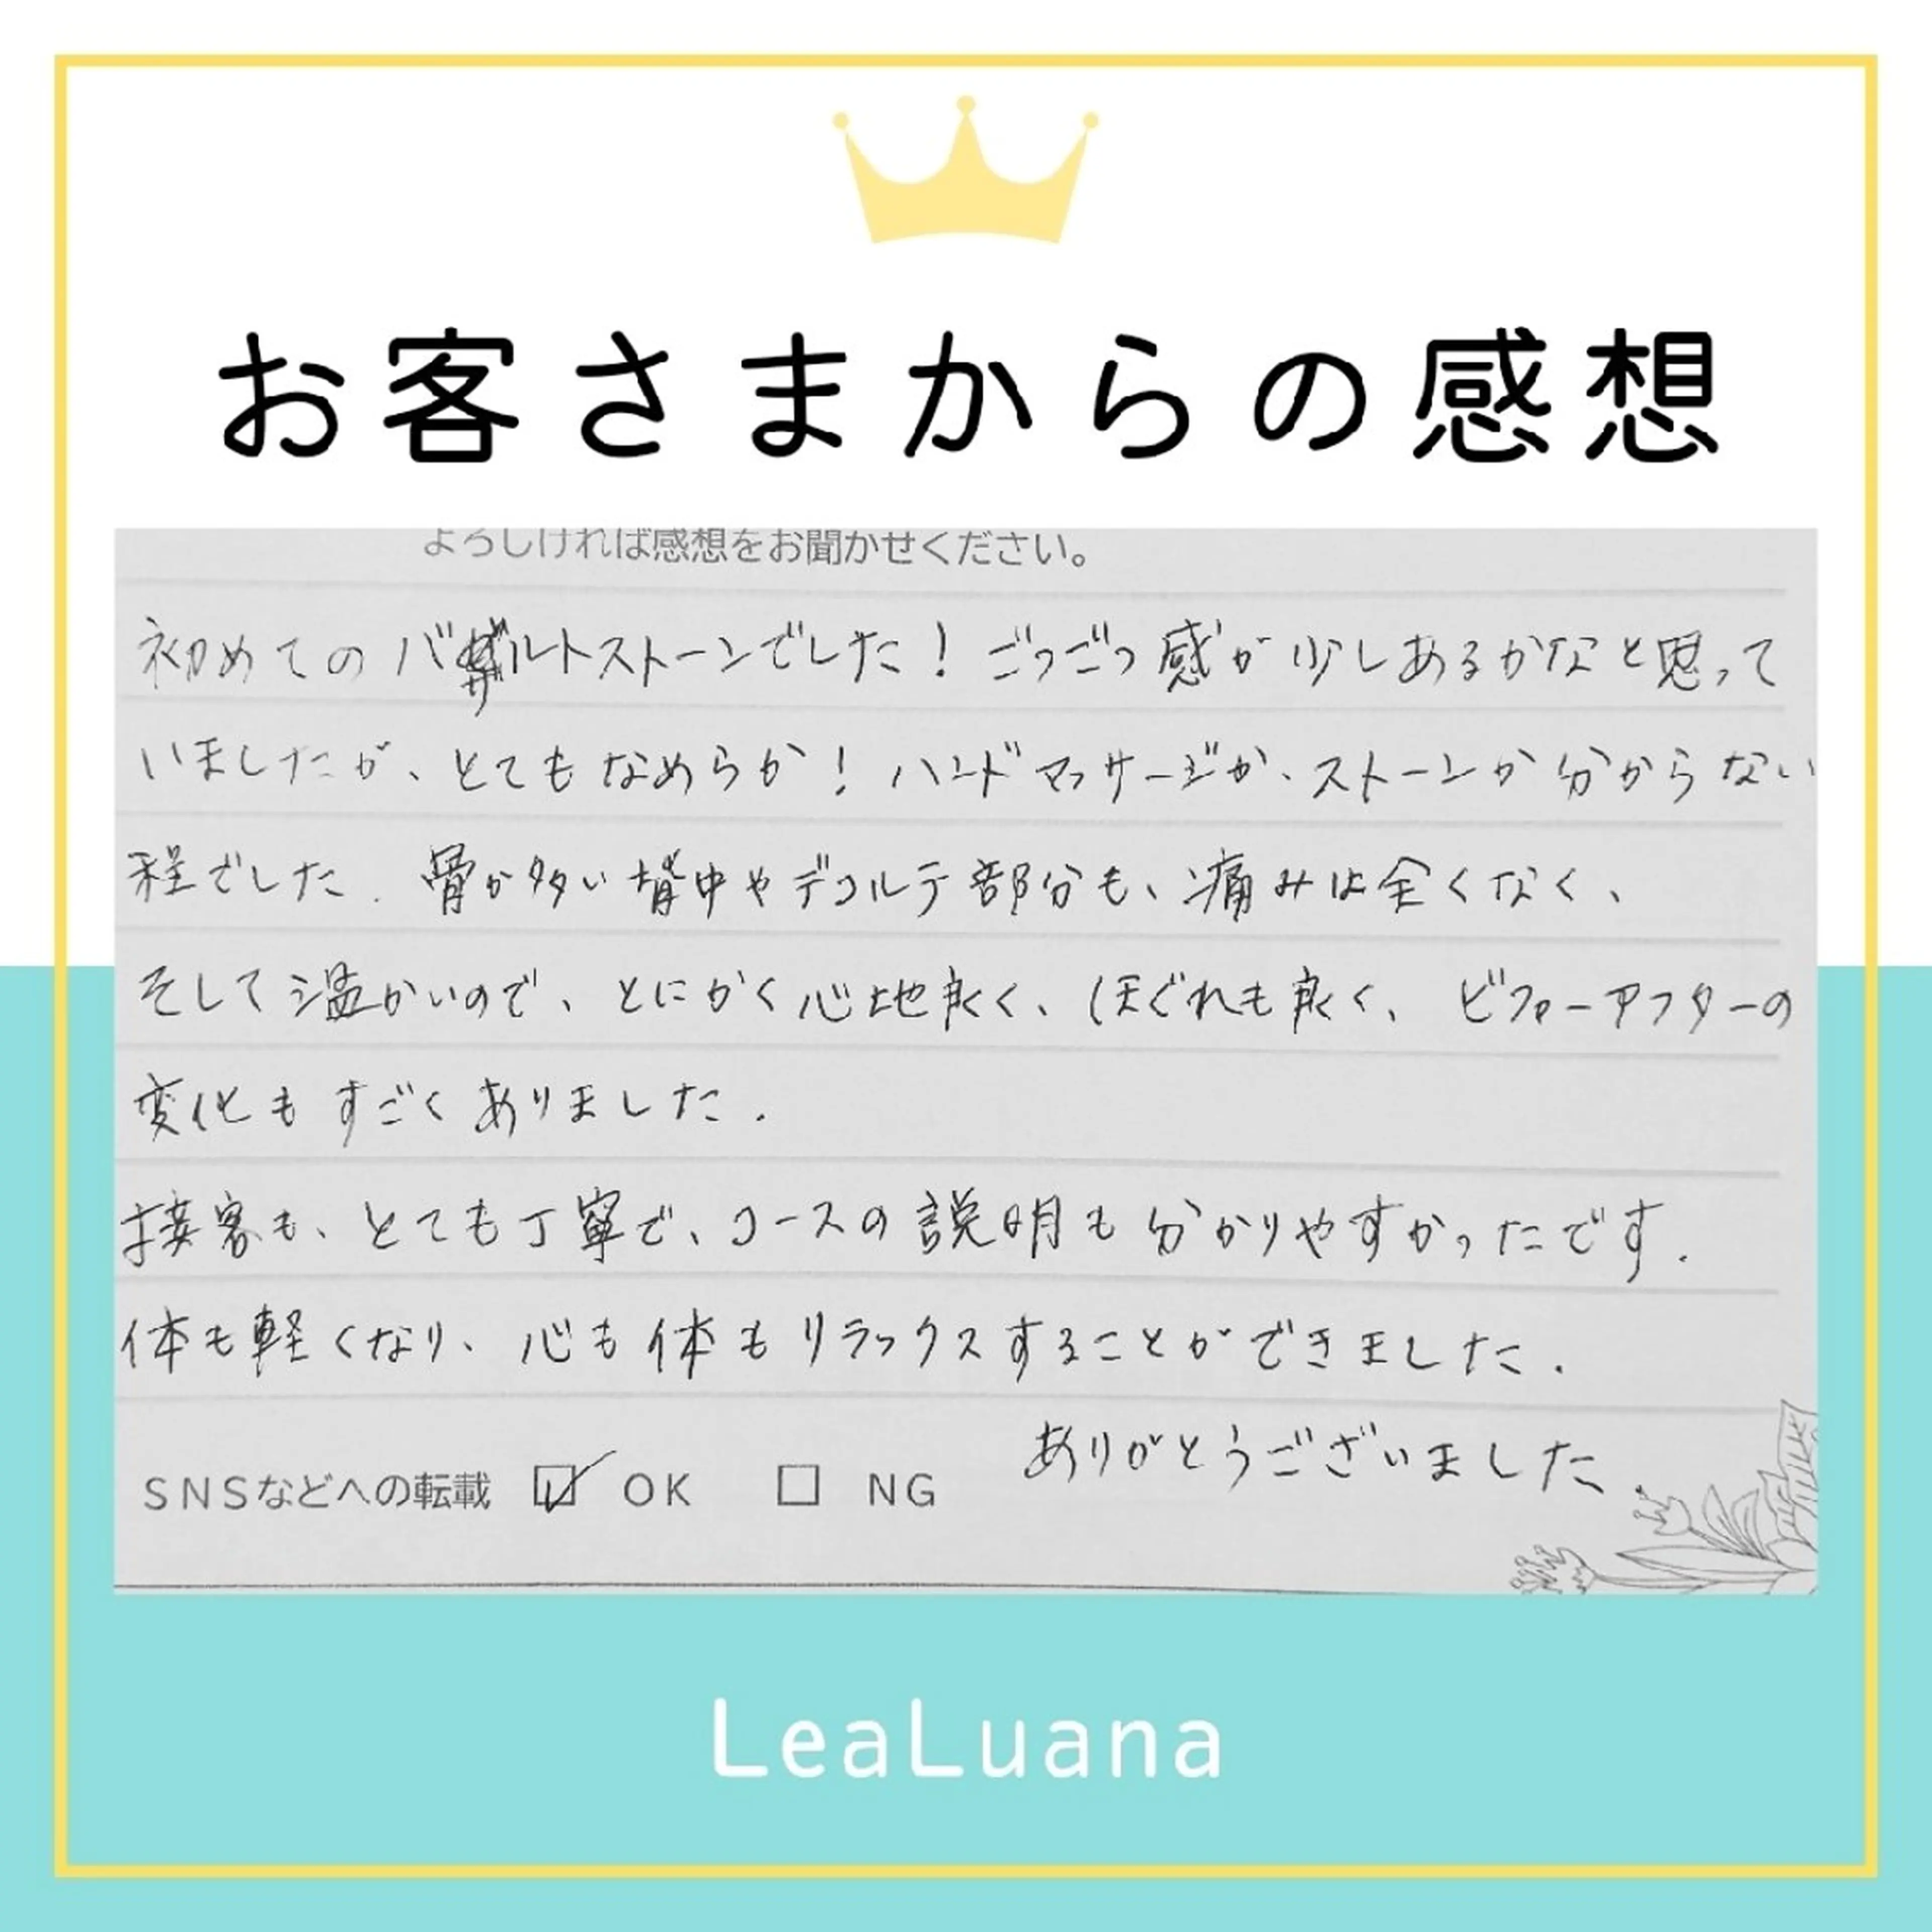 お客さまからの感想
よろしければ感想をお聞かせください。
初めてのバザルトストーンでした！ごつごつ感が少しあるかなと思って
いましたが、とてもなめらか！ハンドマッサージか、ストーンか分からない
程でした．骨が多い背中やデコルテ部分も、痛みは全くなく、
そして温かいので、とにかく心地良く、ほぐれも良く、ビフォーアフターの
変化もすごくありました．
接客も、とても丁寧で、コースの説明も分かりやすかったです．
体も軽くなり、心も体もリラックスすることができました．
ありがとうございました．
SNSなどへの転載 ☑ OK □ NG
LeaLuana